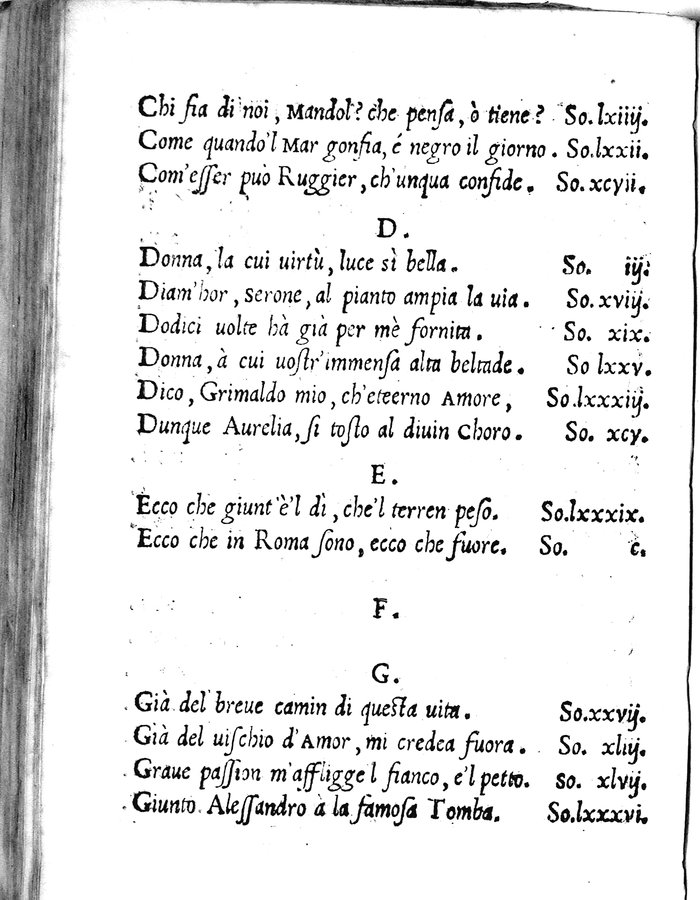 Chi ſia di noi, Mandol? che penſa, ò tiene? So. lxiiij.
Come quando'l Mar gonfia, é negro il giorno. So. lxxii.
Com'eſſer può Ruggier, ch'unqua confide. So. xcvii.
D.
Donna, la cui uirtù, luce sì bella. So. iij.
Diam'hor, serone, al pianto ampia la uia. So. xviij.
Dodici uolte hà già per mè fornita. So. xix.
Donna, à cui uoſtr'immenſa alta beltade. So lxxv.
Dico, Grimaldo mio, ch'eteerno Amore, So. lxxxiij.
Dunque Aurelia, ſi toſto al diuin Choro. So. xcv.
E.
Ecco che giunt'è'l dì, che'l terren peſo. So. lxxxix.
Ecco che in Roma ſono, ecco che fuore. So. c.
F.
G.
Già del breue camin di queſta uita. So. xxvij.
Già del uiſchio d'Amor, mi credea fuora. So. xliij.
Graue paſſion m'affligge'l fianco, e'l petto. so. xlvij.
Giunto Aleſſandro à la famoſa Tomba. So. lxxxvi.